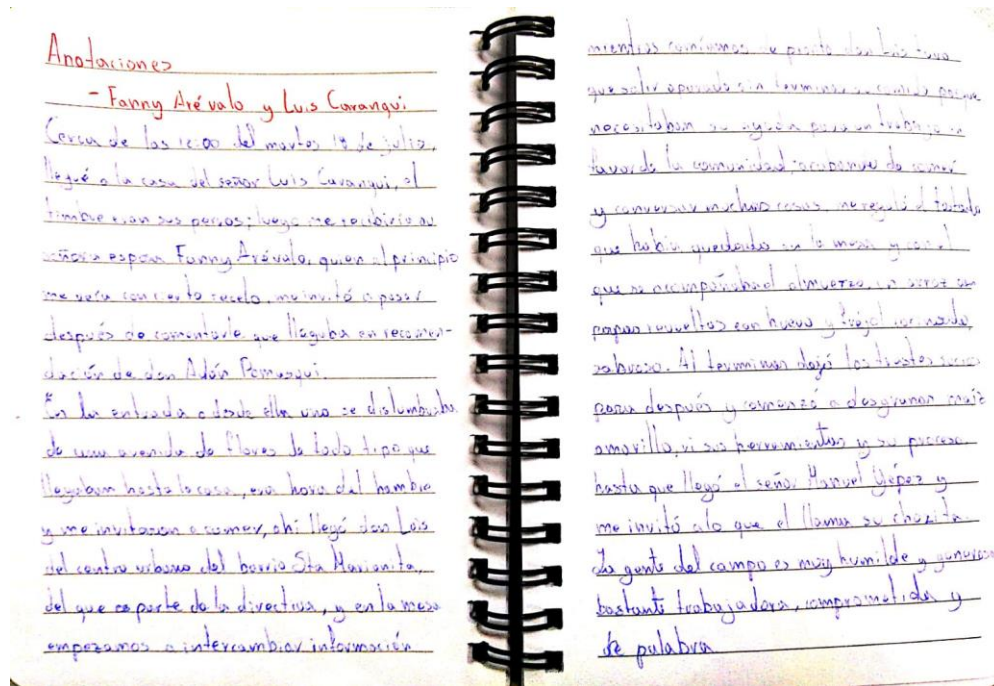 Anotaciones
- Fanny Arévalo y Luis Caranqui.
Cerca de las 12:00 del martes 18 de julio,
llegué a la casa del señor Luis Caranqui, el
timbre eran sus perros; luego me recibió su
señora esposa Fanny Arévalo, quien al principio
me veía con cierto recelo, me invitó a pasar
después de comentarle que llegaba en recomen-
dación de don Adán Pomasqui.
En la entrada o desde ella uno se dislumbraba
de una avenida de flores de todo tipo que
llegaban hasta la casa, era hora del hambre
y me invitaron a comer, ahí llegó don Luis
del centro urbano del barrio Sta Marianita,
del que es parte de la directiva, y en la mesa
empezamos a intercambiar información
mientras comíamos de pronto don Luis tuvo
que salir apurado sin terminar su comida porque
necesitaban su ayuda para un trabajo en
favor de la comunidad, acabando de comer
y conversar muchas cosas, me regaló el tostado
que había quedado en la mesa y con el
que se acompañaba el almuerzo, un arroz con
papas revueltas con huevo y fréjol cocinado,
sabroso. Al terminar dejó los trastes sucios
para después y comenzó a desgranar maíz
amarillo, vi sus herramientas y su proceso
hasta que llegó el señor Manuel Yépez y
me invitó a lo que el llama su chozita.
La gente del campo es muy humilde y generosa
bastante trabajadora, comprometida y
de palabra